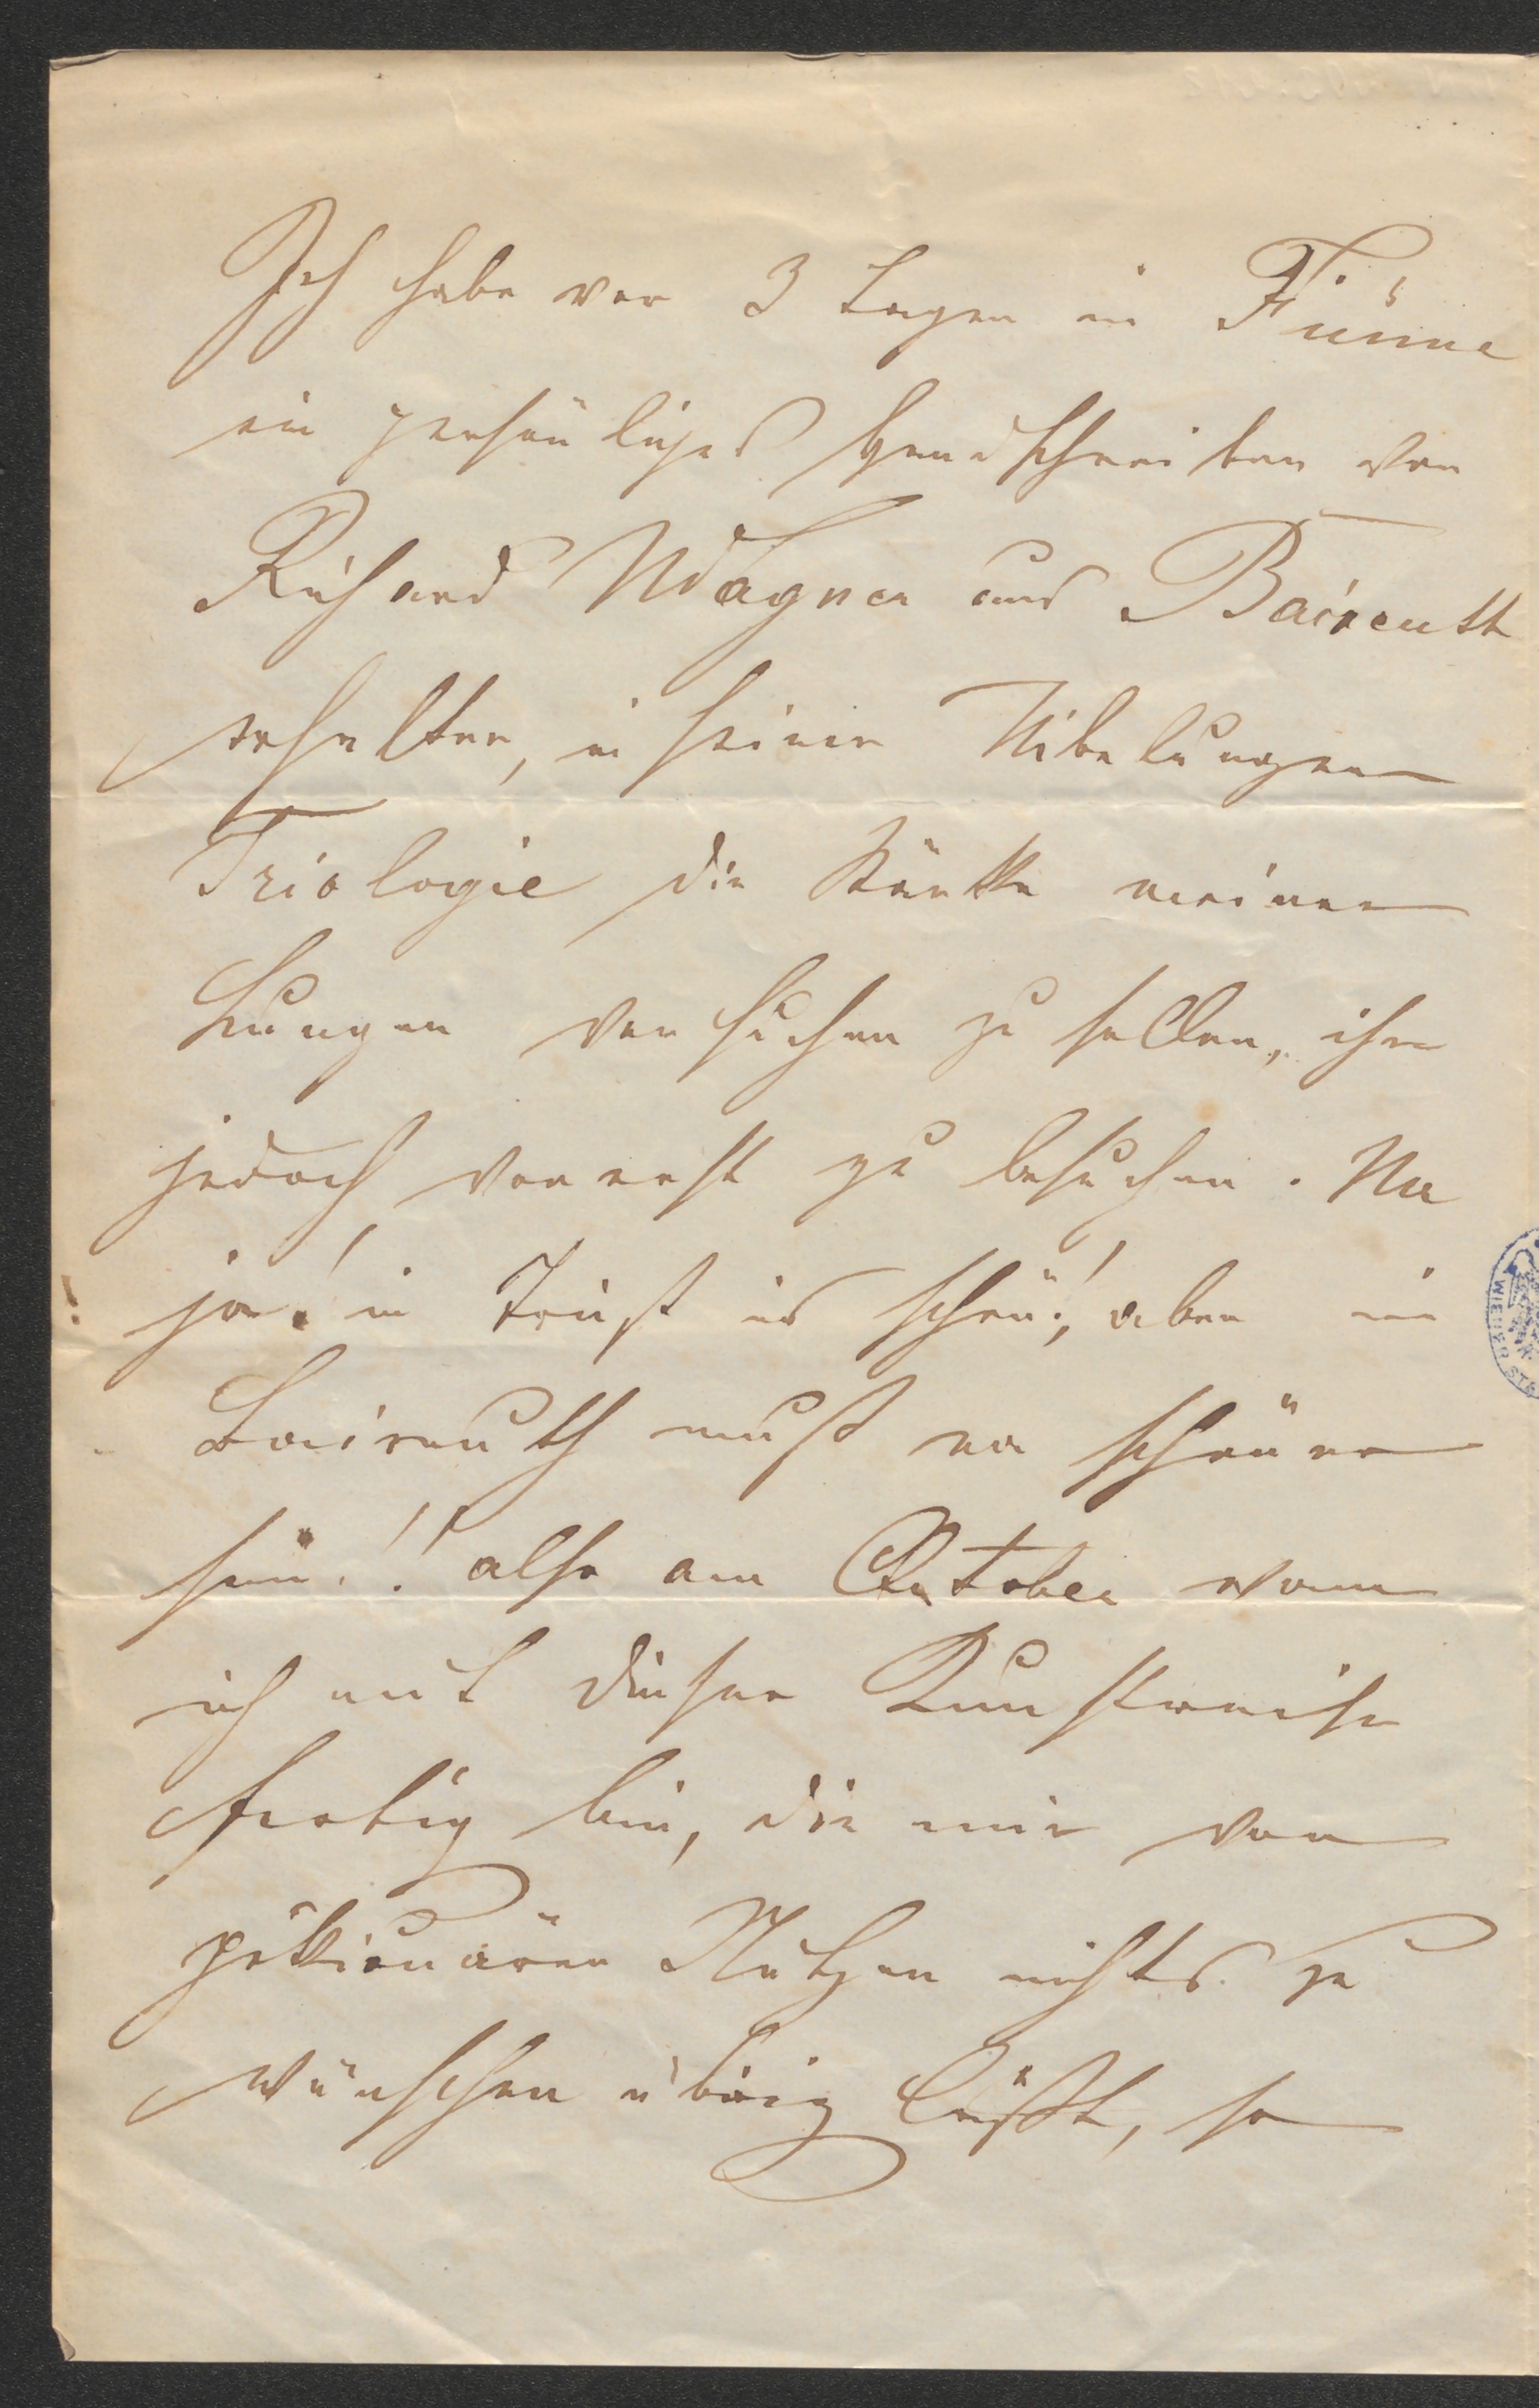 Ich habe vor 3 Tagen in Fiume
ein persönliches Handschreiben von
Richard Wagner aus Baireuth
erhalten, in seiner Nibelungen
Triologie die Stärke meiner
Lungen versuchen zu sollen, ihn
jedoch vorerst zu besuchen. Na
ja! in Triest is schön!, aber in
Baireuth muß es schöner
sein!! also am October wann
ich mit dieser Kunstreise
fertig bin, die mir von
pekkienären Nutzen nichts zu
wünschen übrig läßt, so
WIENER STA